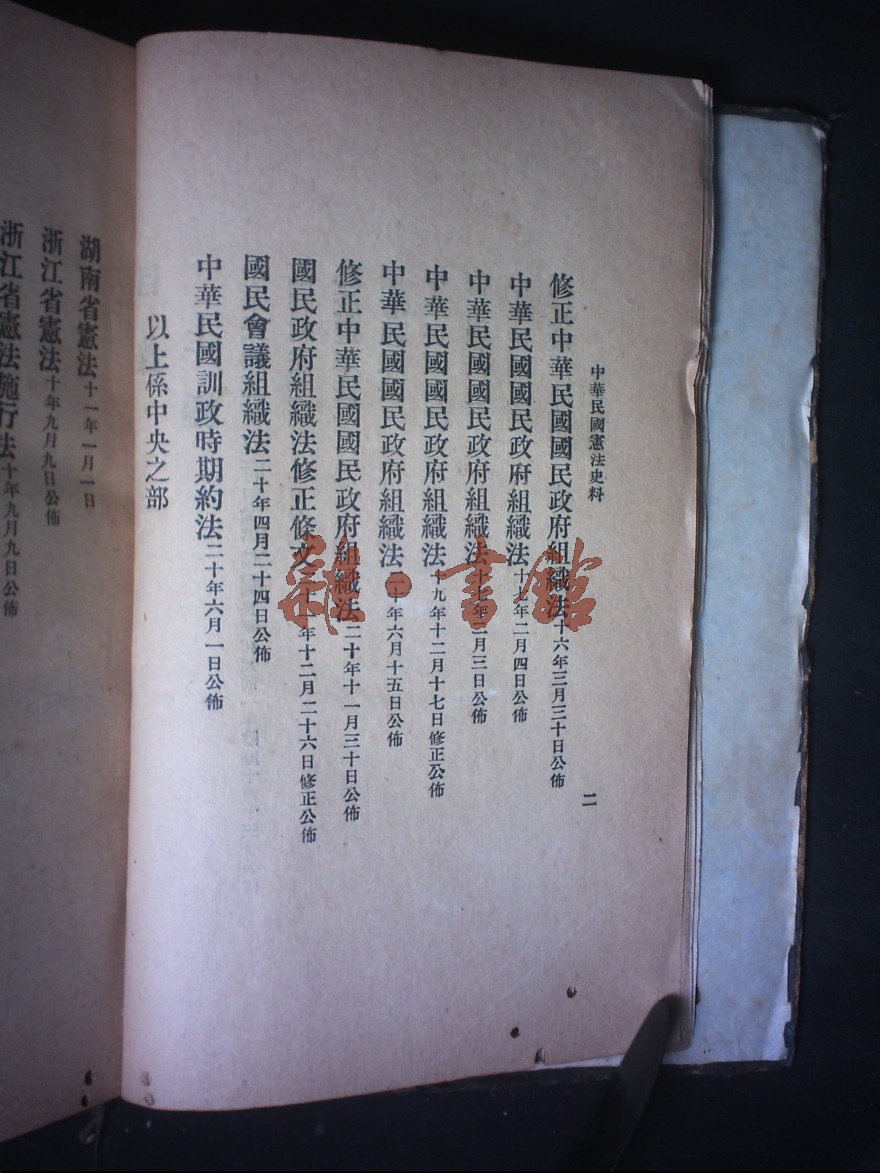 中華民國憲法史料
二
修正中華民國國民政府組織法十六年三月三十日公佈
中華民國國民政府組織法十七年二月四日公佈
中華民國國民政府組織法十七年月三日公佈
中華民國國民政府組織法十九年十二月十七日修正公佈
中華民國國民政府組織法二十年六月十五日公佈
修正中華民國國民政府組織法二十年十一月三十日公佈
國民政府組織法修正條文十一年十二月二十六日修正公佈
國民會議組織法二十年四月二十四日公佈
中華民國訓政時期約法二十年六月一日公佈
以上係中央之部
湖南省憲法十一年一月一日
浙江省憲法十年九月九日公佈
浙江省憲法施行法十年九月九日公佈
雜·書館